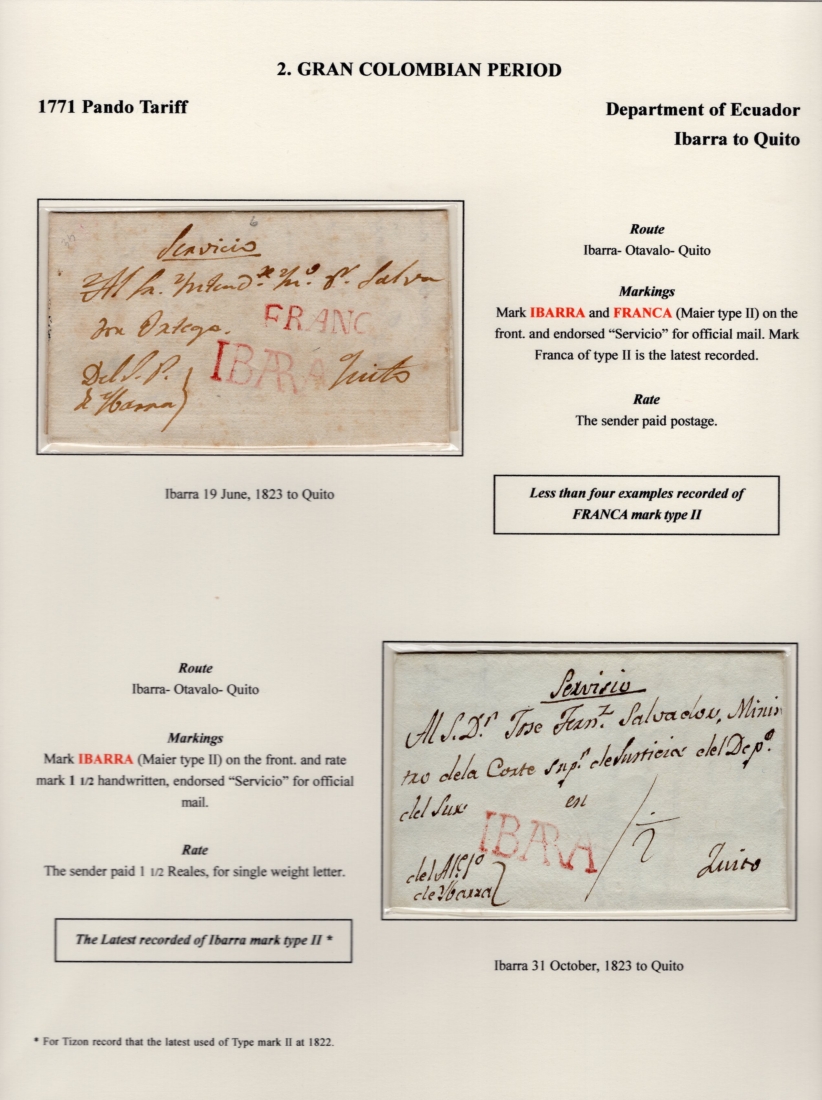 2. GRAN COLOMBIAN PERIOD
1771 Pando Tariff
Department of Ecuador
Ibarra to Quito
Servicio
Al Sr. Intend.te
Salva
dor Ortega.
FRANC
Del S. P.
de Ibarra
IBARRA
Quito
Ibarra 19 June, 1823 to Quito
Route
Ibarra- Otavalo- Quito
Markings
Mark IBARRA and FRANCA (Maier type II) on the
front. and endorsed “Servicio” for official mail. Mark
Franca of type II is the latest recorded.
Rate
The sender paid postage.
Less than four examples recorded of
FRANCA mark type II
Route
Ibarra- Otavalo- Quito
Markings
Mark IBARRA (Maier type II) on the front. and rate
mark 1 1/2 handwritten, endorsed “Servicio” for official
mail.
Rate
The sender paid 1 1/2 Reales, for single weight letter.
The Latest recorded of Ibarra mark type II *
Servisio
Al S.Dr. Jose Fernz. Salvador, Minis
tro dela Corte Supr. de Justicia del Depo.
del Sur en
IBARRA
1/2
Quito
del
de Ibarra
Ibarra 31 October, 1823 to Quito
* For Tizon record that the latest used of Type mark II at 1822.